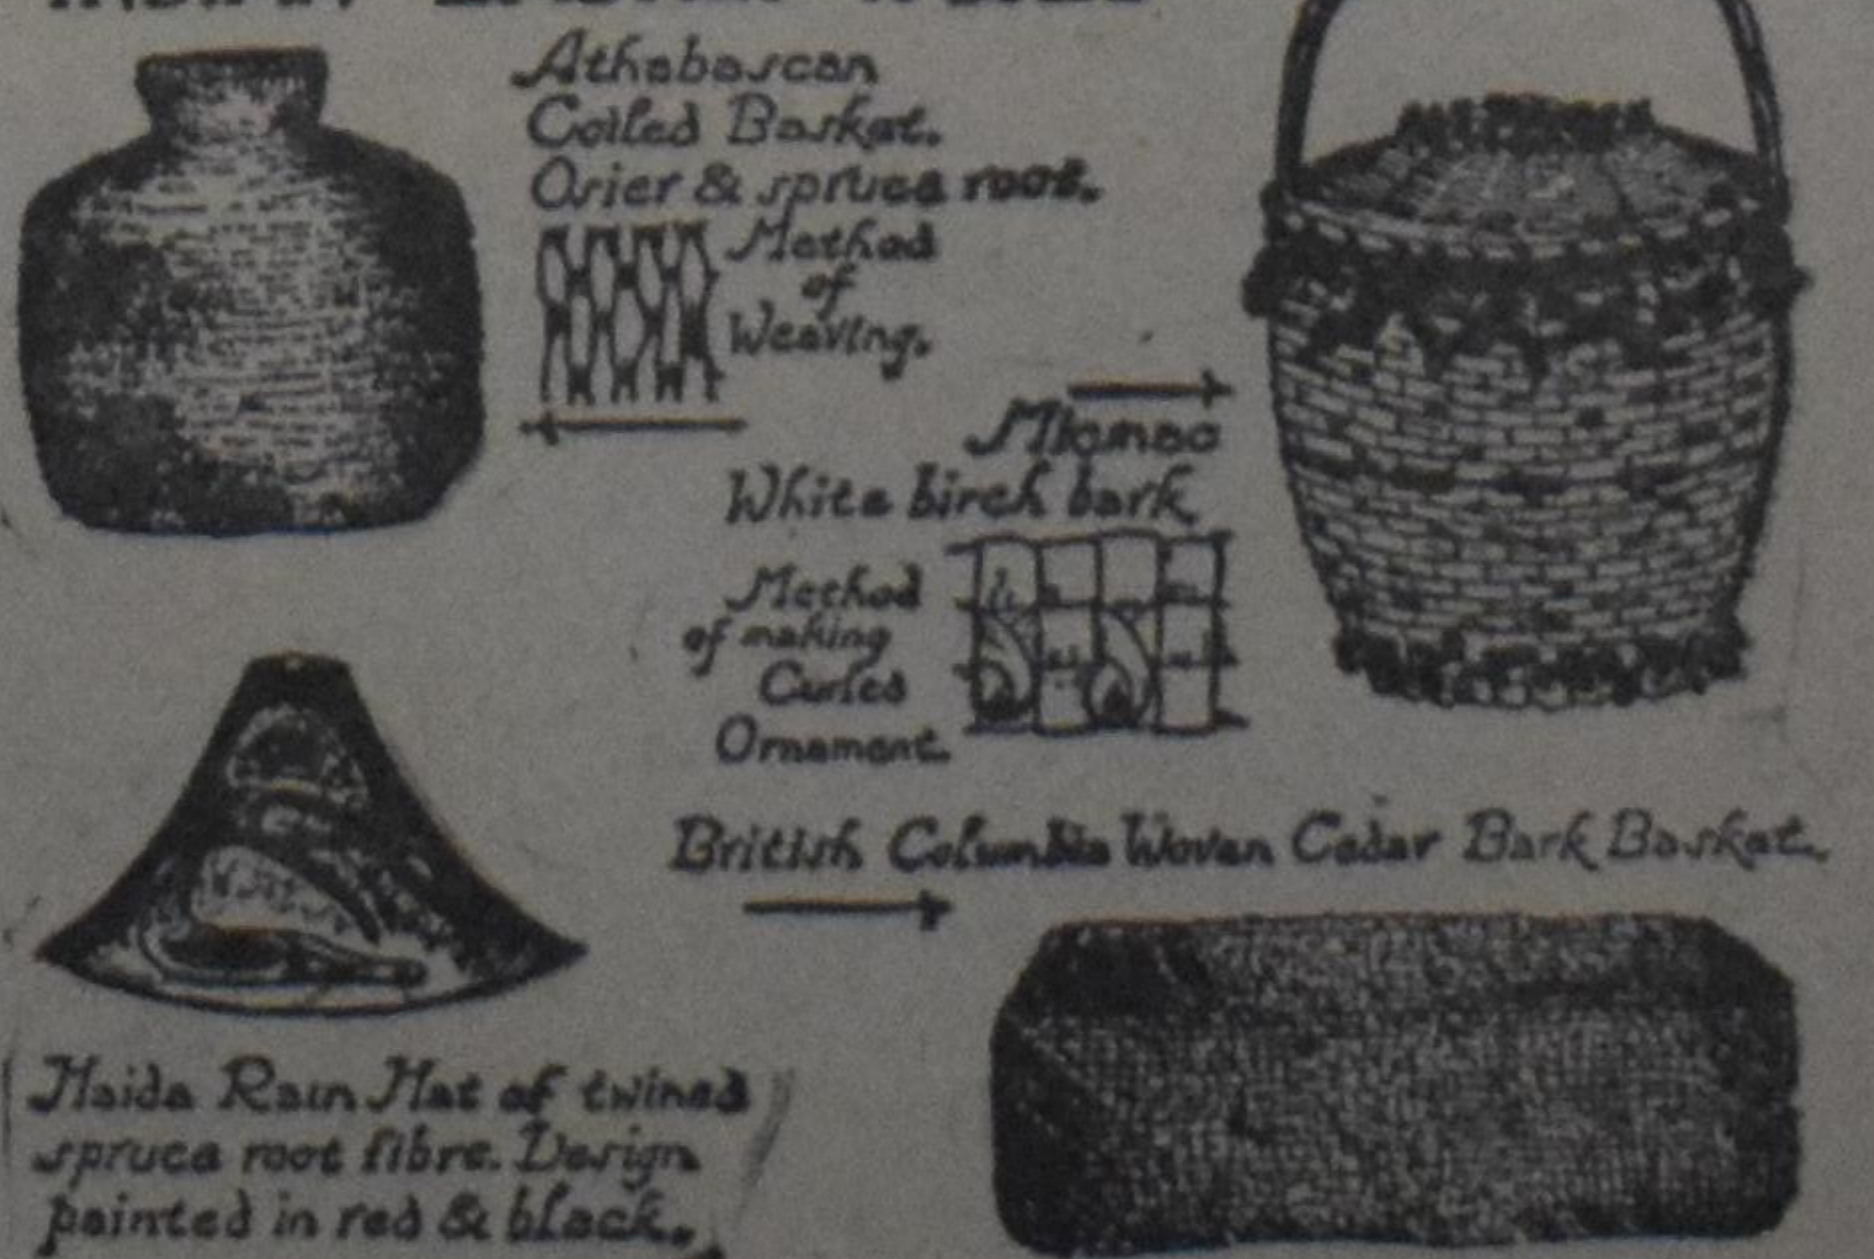 Athabascan
Coiled Basket.
Osier & spruce root.
Method
of
Weaving.
Micmac
White birch bark
Method
of making
Curled
Ornament.
British Columbia Woven Cedar Bark Basket.
Haida Rain Hat of twined
spruce root fibre. Design
painted in red & black.